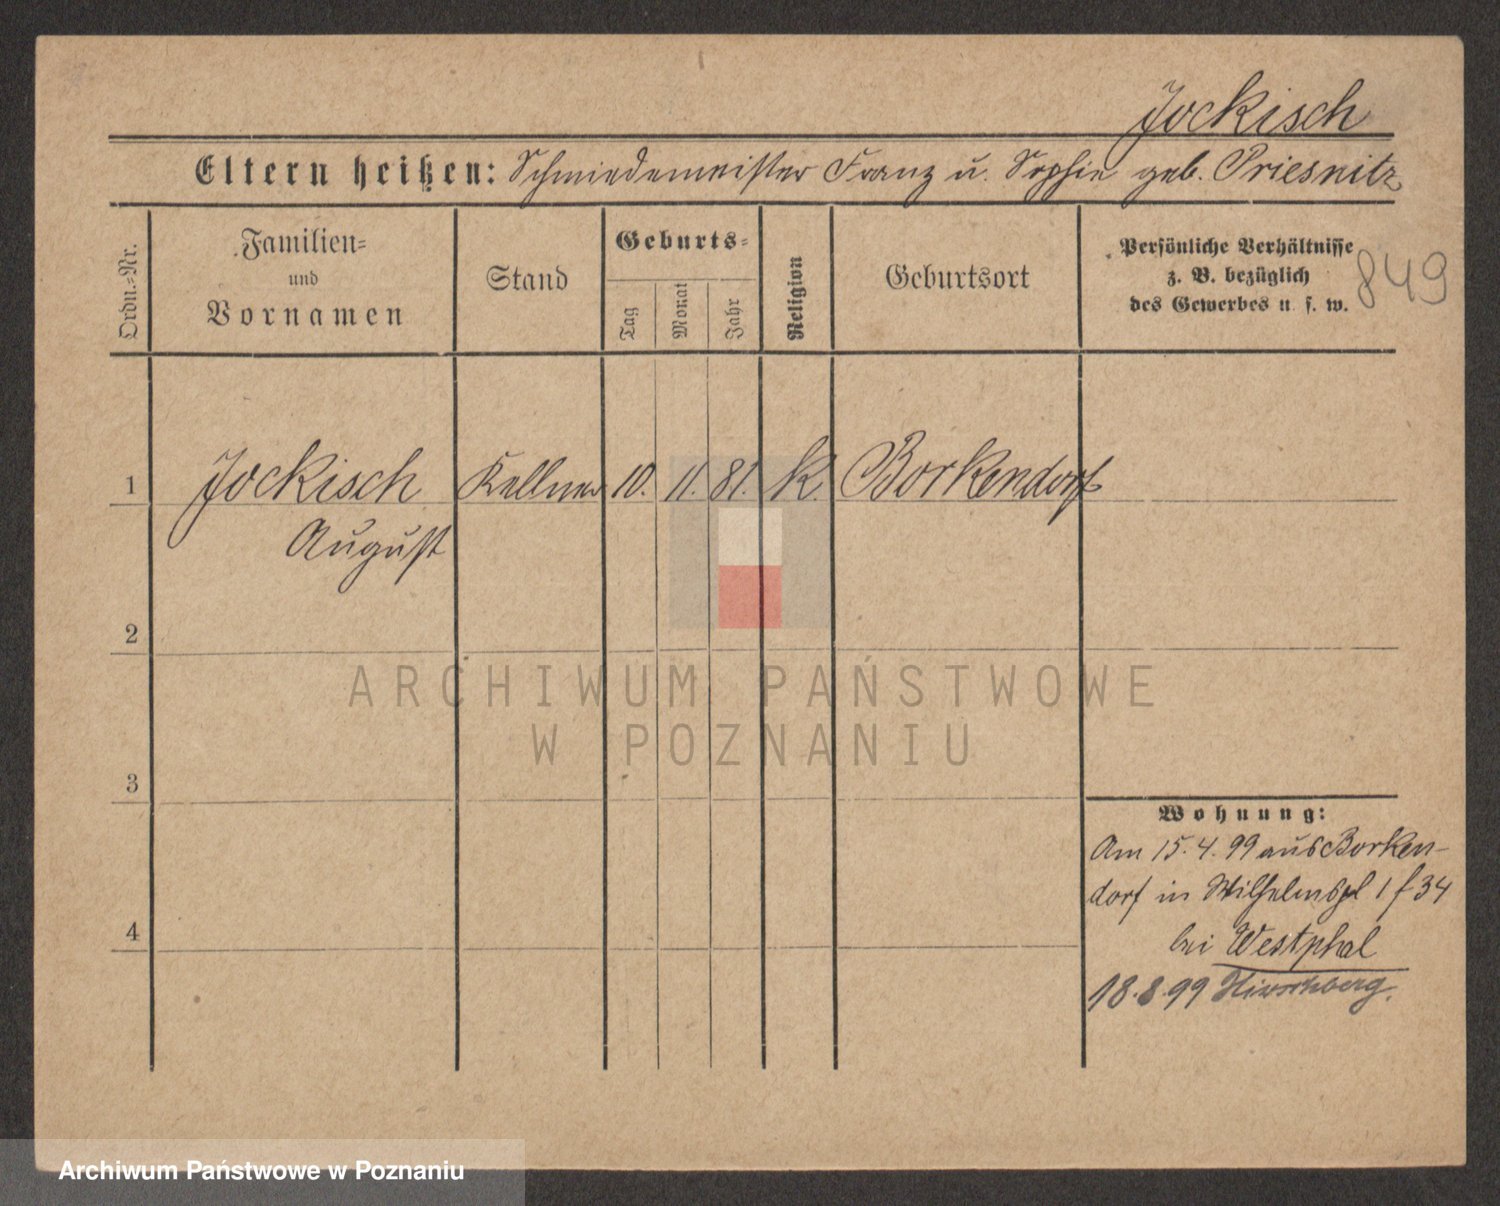 Jockisch
Eltern heißen: Schmiedemeister Franz u. Sophie geb. Priesnitz
Ordn.-Nr.
Familien-
und
Vornamen
Stand
Geburts-
Tag
Monat
Jahr
Religion
Geburtsort
Persönliche Verhältnisse
z. B. bezüglich
des Gewerbes u. s. w.
849
1 Jockisch Kellner 10. 11. 81. K. Borkendorf
August
2
3
4
Wohnung:
Am 15.4.99 aus Borken-
dorf in Wilhelmspl 1 f 34
bei Westphal
18.8.99 Hirschberg.
ARCHIWUM PAŃSTWOWE
W POZNANIU
Archiwum Państwowe w Poznaniu